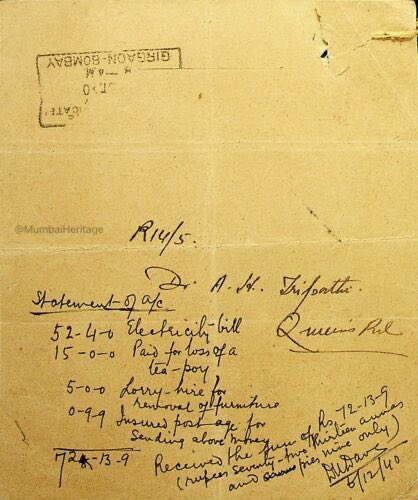 GIRGAON-BOMBAY
@MumbaiHeritage
R14/5.
Dr. A. H. Tripathi.
Queens Rd
Statement of a/c
52-4-0 Electricity-bill
15-0-0 Paid for loss of a
tea-poy
5-0-0 Lorry-hire for
removal of furniture
0-9-9 Insured postage for
sending above money
72-13-9
Received the sum of Rs. 72-13-9
(rupees seventy-two thirteen annas
and pies nine only)
5/12/40